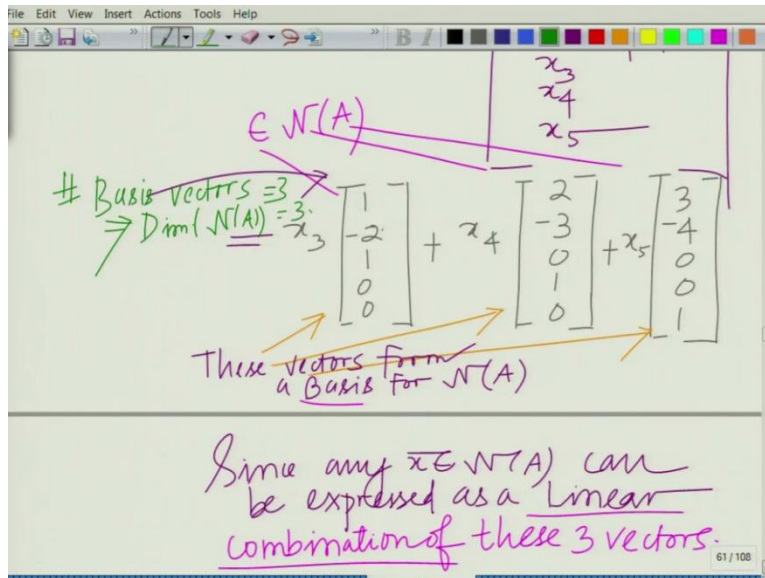 File Edit View Insert Actions Tools Help
x3
x4
x5
∈ N(A)
# Basis vectors = 3
⇒ Dim( N(A)) = 3.
x3 [1 -2 1 0 0] + x4 [2 -3 0 1 0] + x5 [3 -4 0 0 1]
These vectors form
a Basis for N(A)
Since any x̄ ∈ N(A) can
be expressed as a Linear
combination of these 3 vectors.
61 / 108